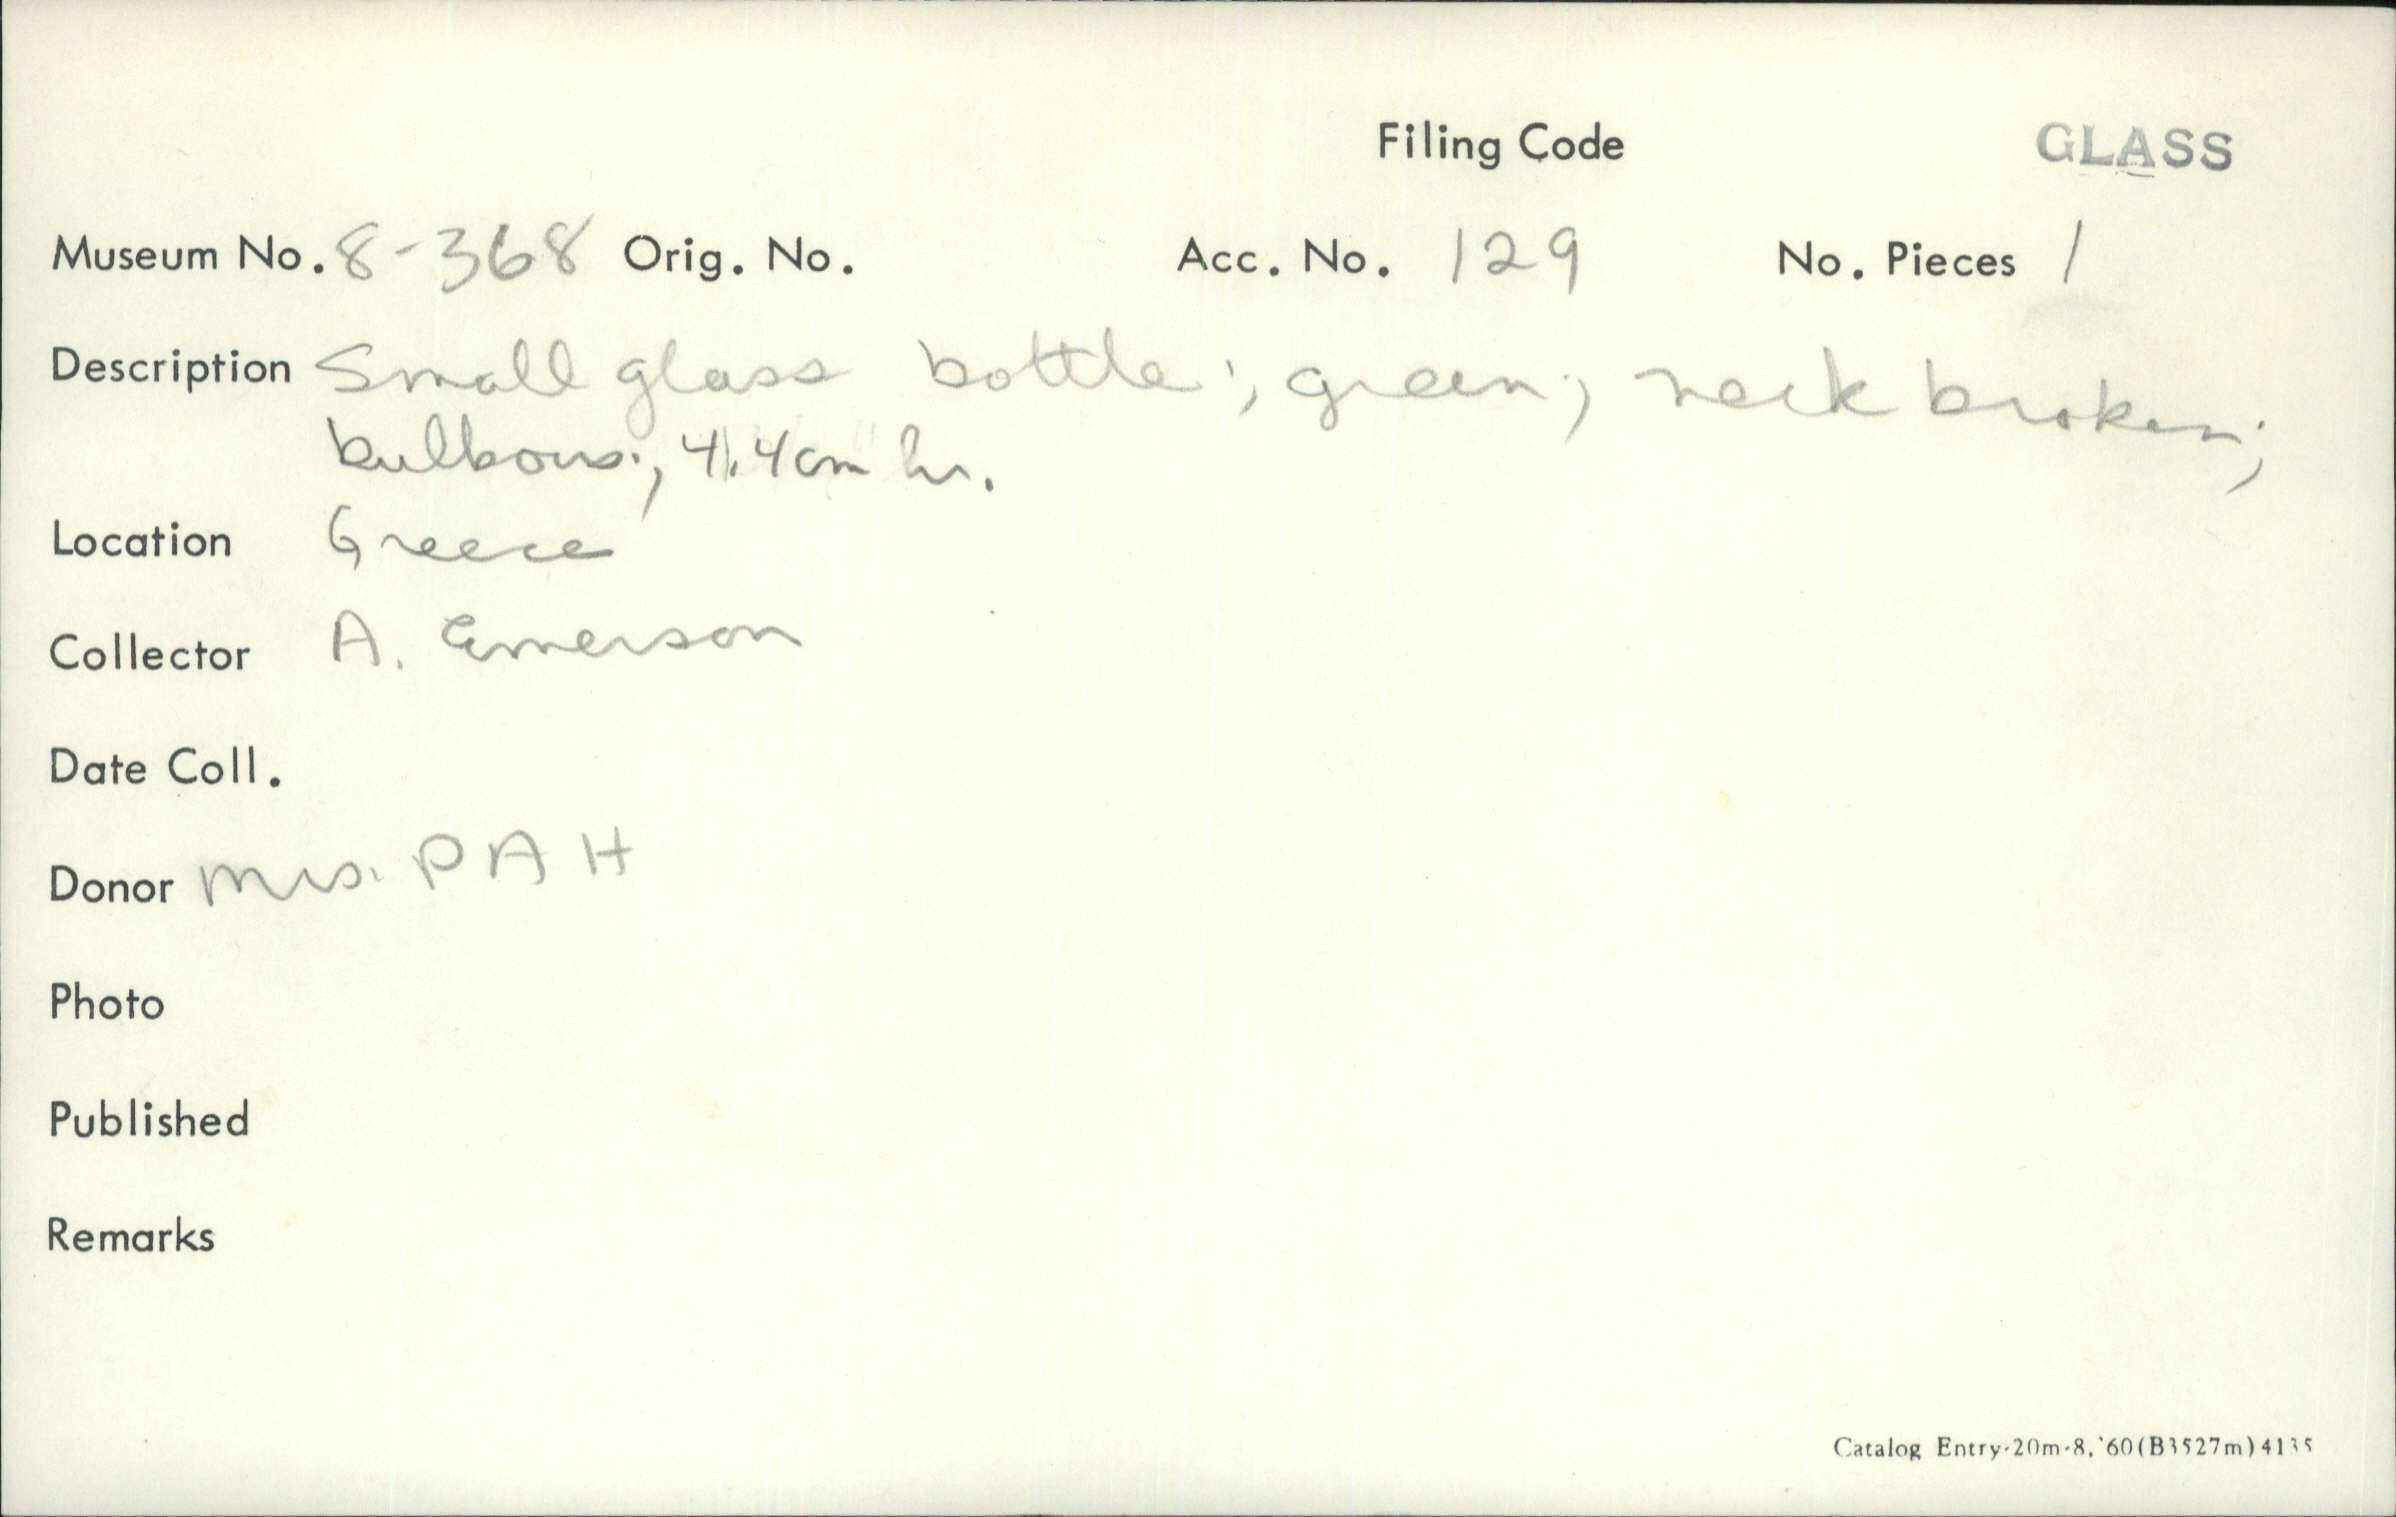 Filing Code GLASS
Museum No. 8-368 Orig. No. Acc. No. 129 No. Pieces 1
Description Small glass bottle; green; neck broken;
bulbous; 4.4cm hi.
Location Greece
Collector A. Emerson
Date Coll.
Donor Mrs. P A H
Photo
Published
Remarks
Catalog Entry-20m-8,'60(B3527m)4135